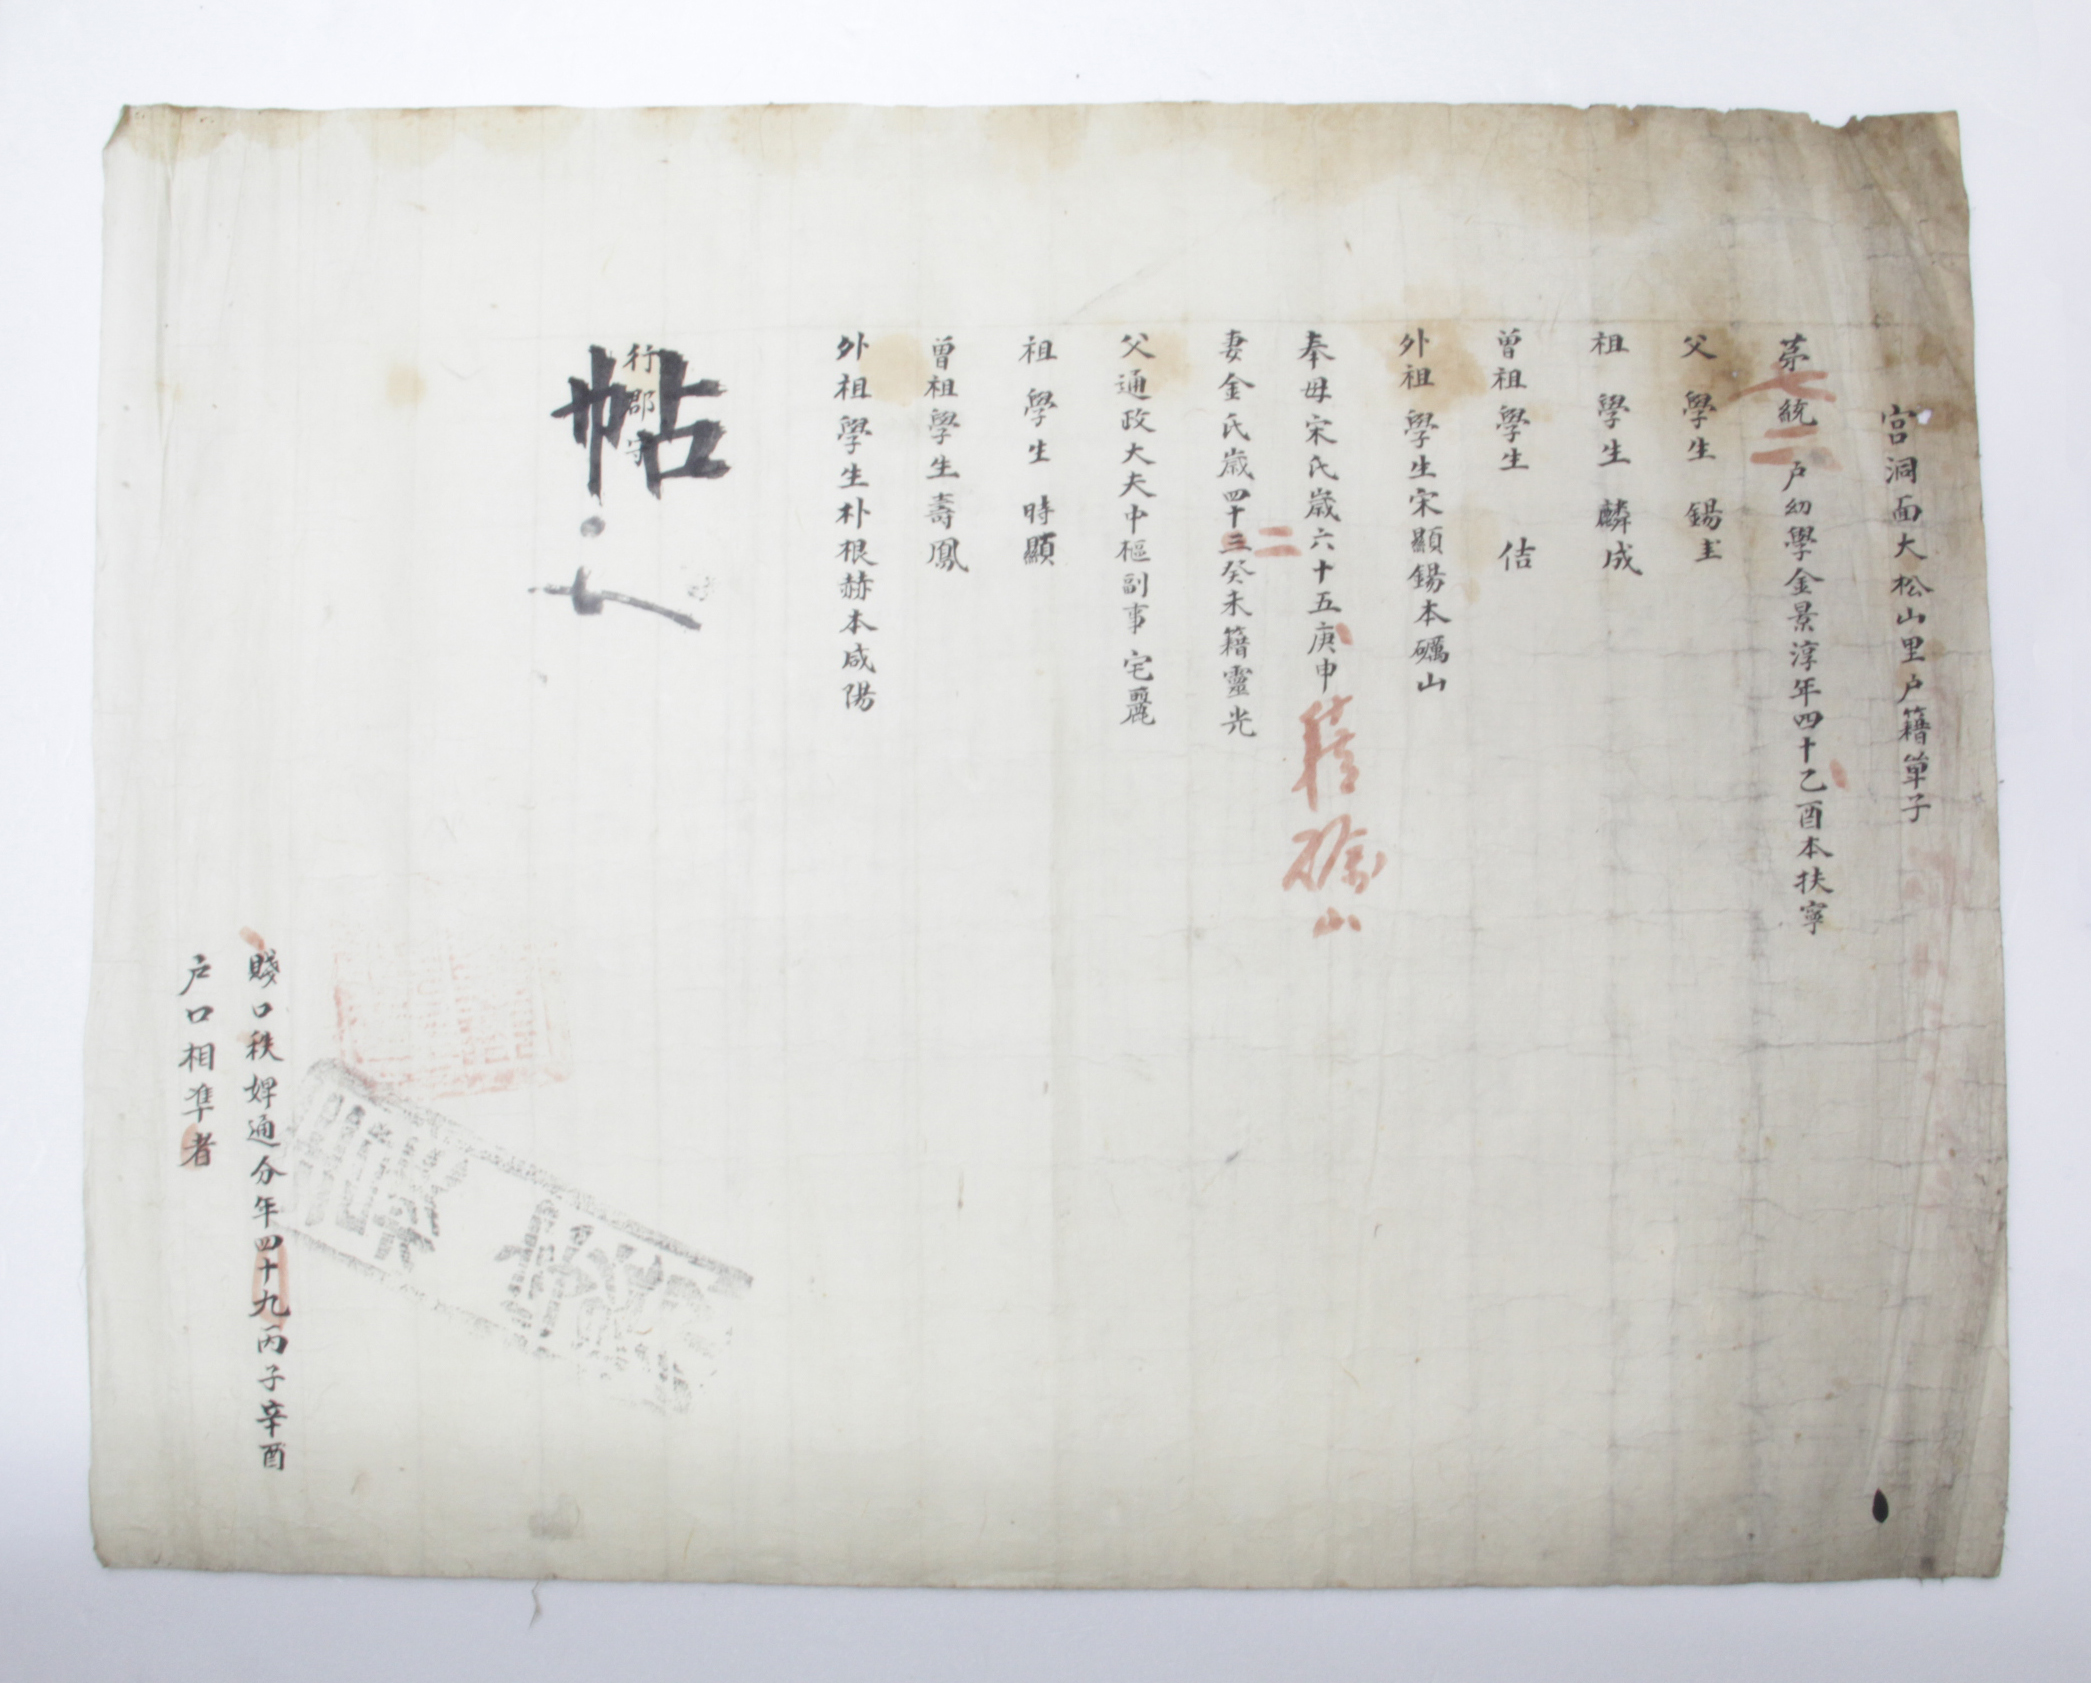 宮洞面大松山里戶籍單子
苐七統二戶幼學金景淳年四十乙酉本扶寧
父學生錫圭
祖學生麟成
曾祖學生佶
外祖學生宋顯錫本礪山
奉母宋氏歲六十五庚申籍礪山
妻金氏歲四十三二癸未籍靈光
父通政大夫中樞副事宅麗
祖學生時顯
曾祖學生壽鳳
外祖學生朴根赫本咸陽
行郡守
帖
賤口秩婢通分年四十九丙子辛酉
戶口相凖者